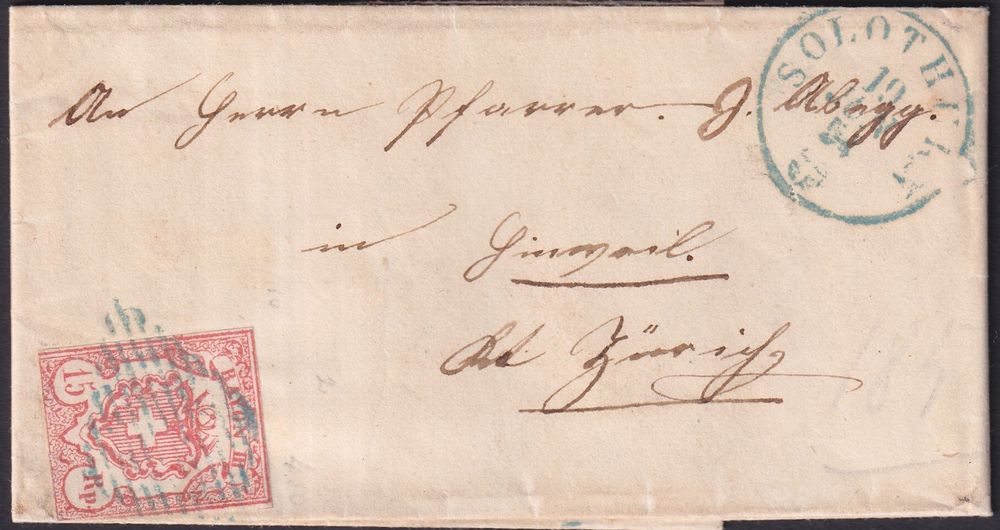 SOLOTHURN
19
54
An Herrn Pfarrer. J. Abegg.
in Hinweil.
Kt Zürich,
15
RAYON III
Rp.